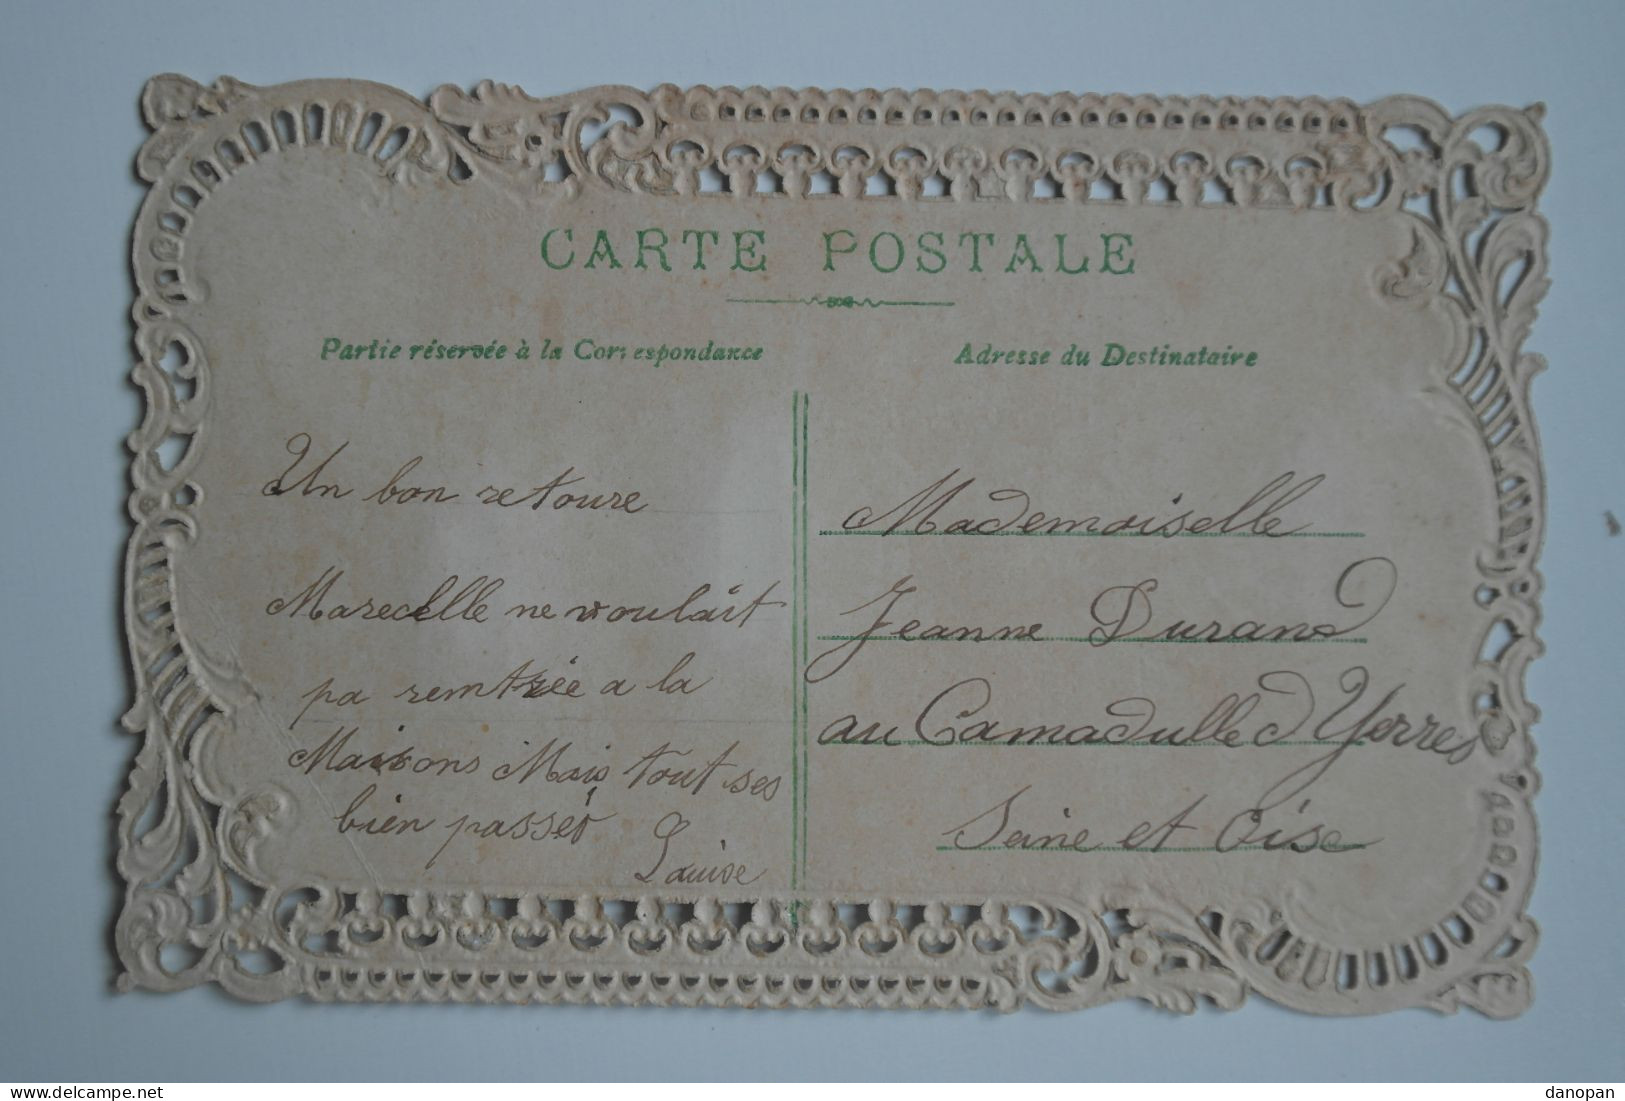 CARTE POSTALE
Partie réservée à la Correspondance
Adresse du Destinataire
Un bon retoure
Marecelle ne voulait
pa remtrée a la
Maisons Mais tout ses
bien passér
Lauise
Mademoiselle
Jeanne Durand
au Camadulle d'Yerres
Seine et Oise
https://www.delcampe.net
danopan